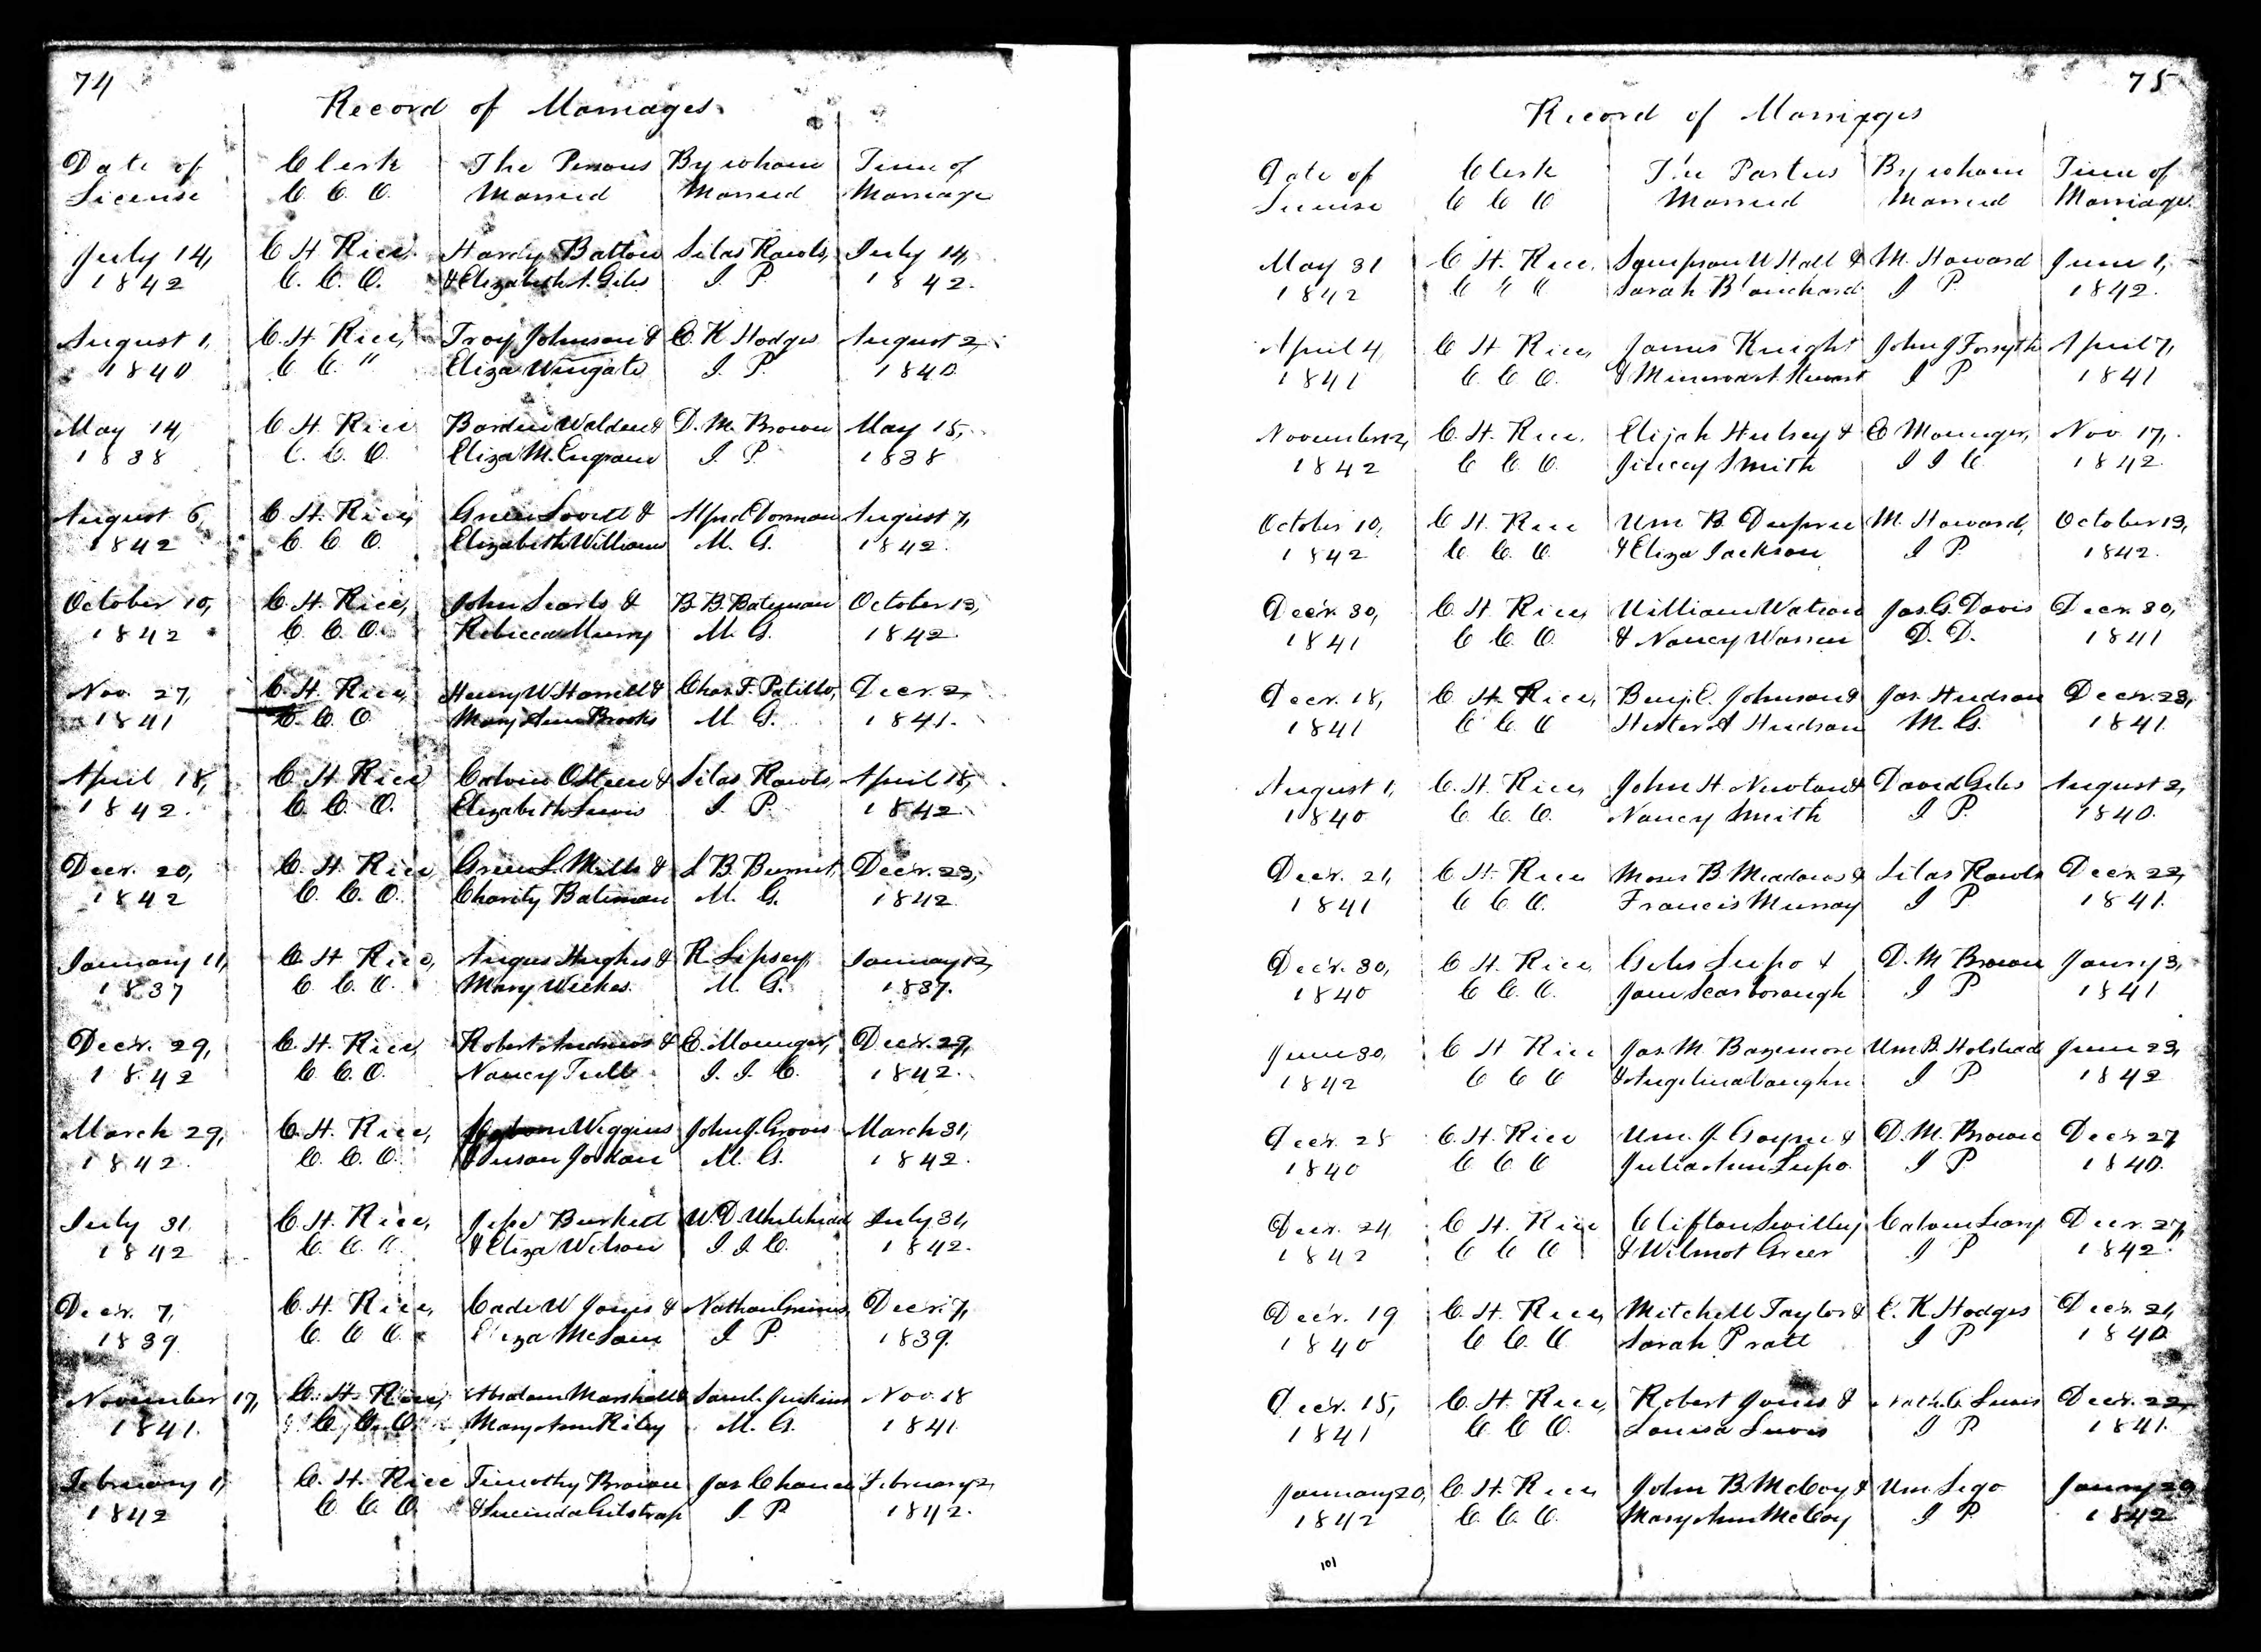 74
Record of Marriages
Date of Clerk The Persons By whom Time of
License C. C. O. Married Married Marriage
July 14, C H Rice, Hardy Batton Silas Rawls, July 14,
1842 C. C. O. & Elizabeth A. Giles J. P. 1842.
August 1, C. H. Rice, Troy Johnson & C. K Hodges August 2,
1840 C C. " Eliza Wingate J. P. 1840
May 14, C H Rice Barden Walden & D. M. Brown May 15,
1838 C. C. O. Eliza M. Engram J. P 1838
August 6, C H. Rice, Green Lovett & August 7,
1842 C. C. O. Elizabeth Williams M. G. 1842.
October 10, C. H. Rice, John Searls & B. B. Bateman October 13,
1842 C. C. O. Rebecca Murry M. G. 1842.
Nov. 27, C. H. Rice, Henry W Harrell & Chas. F. Patillo, Decr. 2,
1841 C. C. O Mary Ann Brooks M G. 1841.
April 18, C. H Rice Calvin OSteen & Silas Rawls, April 18,
1842. C C. O. Elizabeth Lewis J. P. 1842.
Decr. 20, C. H. Rice Green L. Mills & S B. Burnet, Decr. 23,
1842 C. C. O. Charity Bateman M. G. 1842
January 11, C. H Rice, Angus Hughes & R. Lipsey, January 12,
1837 C. C. O. Mary Weekes. M. G. 1837.
Decr. 29, C. H. Rice, Robert Andrews & E. Mounger, Decr. 29,
1842 C. C. O. Nancy Tull J. I. C. 1842.
March 29, C. H. Rice, Wiggins John J. Groves March 31,
1842. C. C. O. & Susan Jordan M. G. 1842.
July 31 C. H. Rice, Jesse Burkett W. D. Whitehead July 31,
1842 C. C. O. & Eliza Wilson J. I. C. 1842.
Decr. 7, C. H. Rice, Cade W Jones & Nathan Grimes Decr. 7,
1839. C. C. O. Eliza McLain J. P. 1839.
November 17, C. H. Rice, Absalom Marshall & Saml. Jenkins Nov. 18
1841. C. C. O. Mary Ann Riley M. G. 1841
February 1, C. H. Rice Timothy Brown Jas. Chance February 2,
1842 C. C. O. & Lucinda Gilstrap J. P. 1842.
75
Record of Marriages
Date of Clerk The Parties By whom Time of
License C C O Married Married Marriage
May 31 C H. Rice, Sampson W Hall & M. Howard June 1,
1842 C C O Sarah Blanchard J P. 1842.
April 4, C H Rice, James Knight John J Forsyth April 7,
1841 C. C. O. & J P. 1841
November 12, C. H. Rice, Elijah Hulsey & E Mounger, Nov. 17,
1842 C C O. Jincey Smith J I C. 1842.
October 10, C. H. Rice Wm B. Dupree M. Howard, October 13,
1842 C. C. O. & Eliza Jackson J P. 1842.
Decr. 30, C. H. Rice, William Watson Jas. G. Davis Decr. 30,
1841 C C. O. & Nancy Warren D. D. 1841
Decr. 18, C H. Rice, Benj. C. Johnson & Jas. Hudson Decr. 23,
1841 C C O Hester A Hudson M. G. 1841.
August 1, C. H. Rice, John H. Newton & David Giles August 2,
1840 C. C. O. Nancy Smith J P. 1840.
Decr. 21, C H. Rice Moses B. Meadows & Silas Rawls Decr. 22,
1841 C C O. Francis Murray J P. 1841.
Decr. 30, C. H. Rice, Giles Lupo & D. M Brown Jany 3,
1840 C C. O. Jane Scarborough J P 1841
June 30, C H Rice Jas. M. Bazemore Wm B. Holstead June 23,
1842 C C O & Angelina Vaughn J P 1842
Decr. 25 C. H. Rice Wm. J. Goyne & D. M. Brown Decr 27
1840 C C O Julia Ann Lupo. J P. 1840.
Decr. 24, C H. Rice Clifton Swilley Calvin Leary Decr. 27,
1842 C C O & Wilmot Greer J P 1842.
Decr. 19 C. H. Rice, Mitchell Taylor & C. K Hodges Decr. 21,
1840 C C. O. Sarah Pratt J P 1840
Decr. 15, C. H. Rice, Robert Jones & Lewis Decr. 22,
1841 C C O. Louisa Lewis J P. 1841.
January 20, C. H. Rice John B. McCoy & Wm Sego Jany 20
1842 C. C. O. Mary Ann McCoy J P. 1842
101